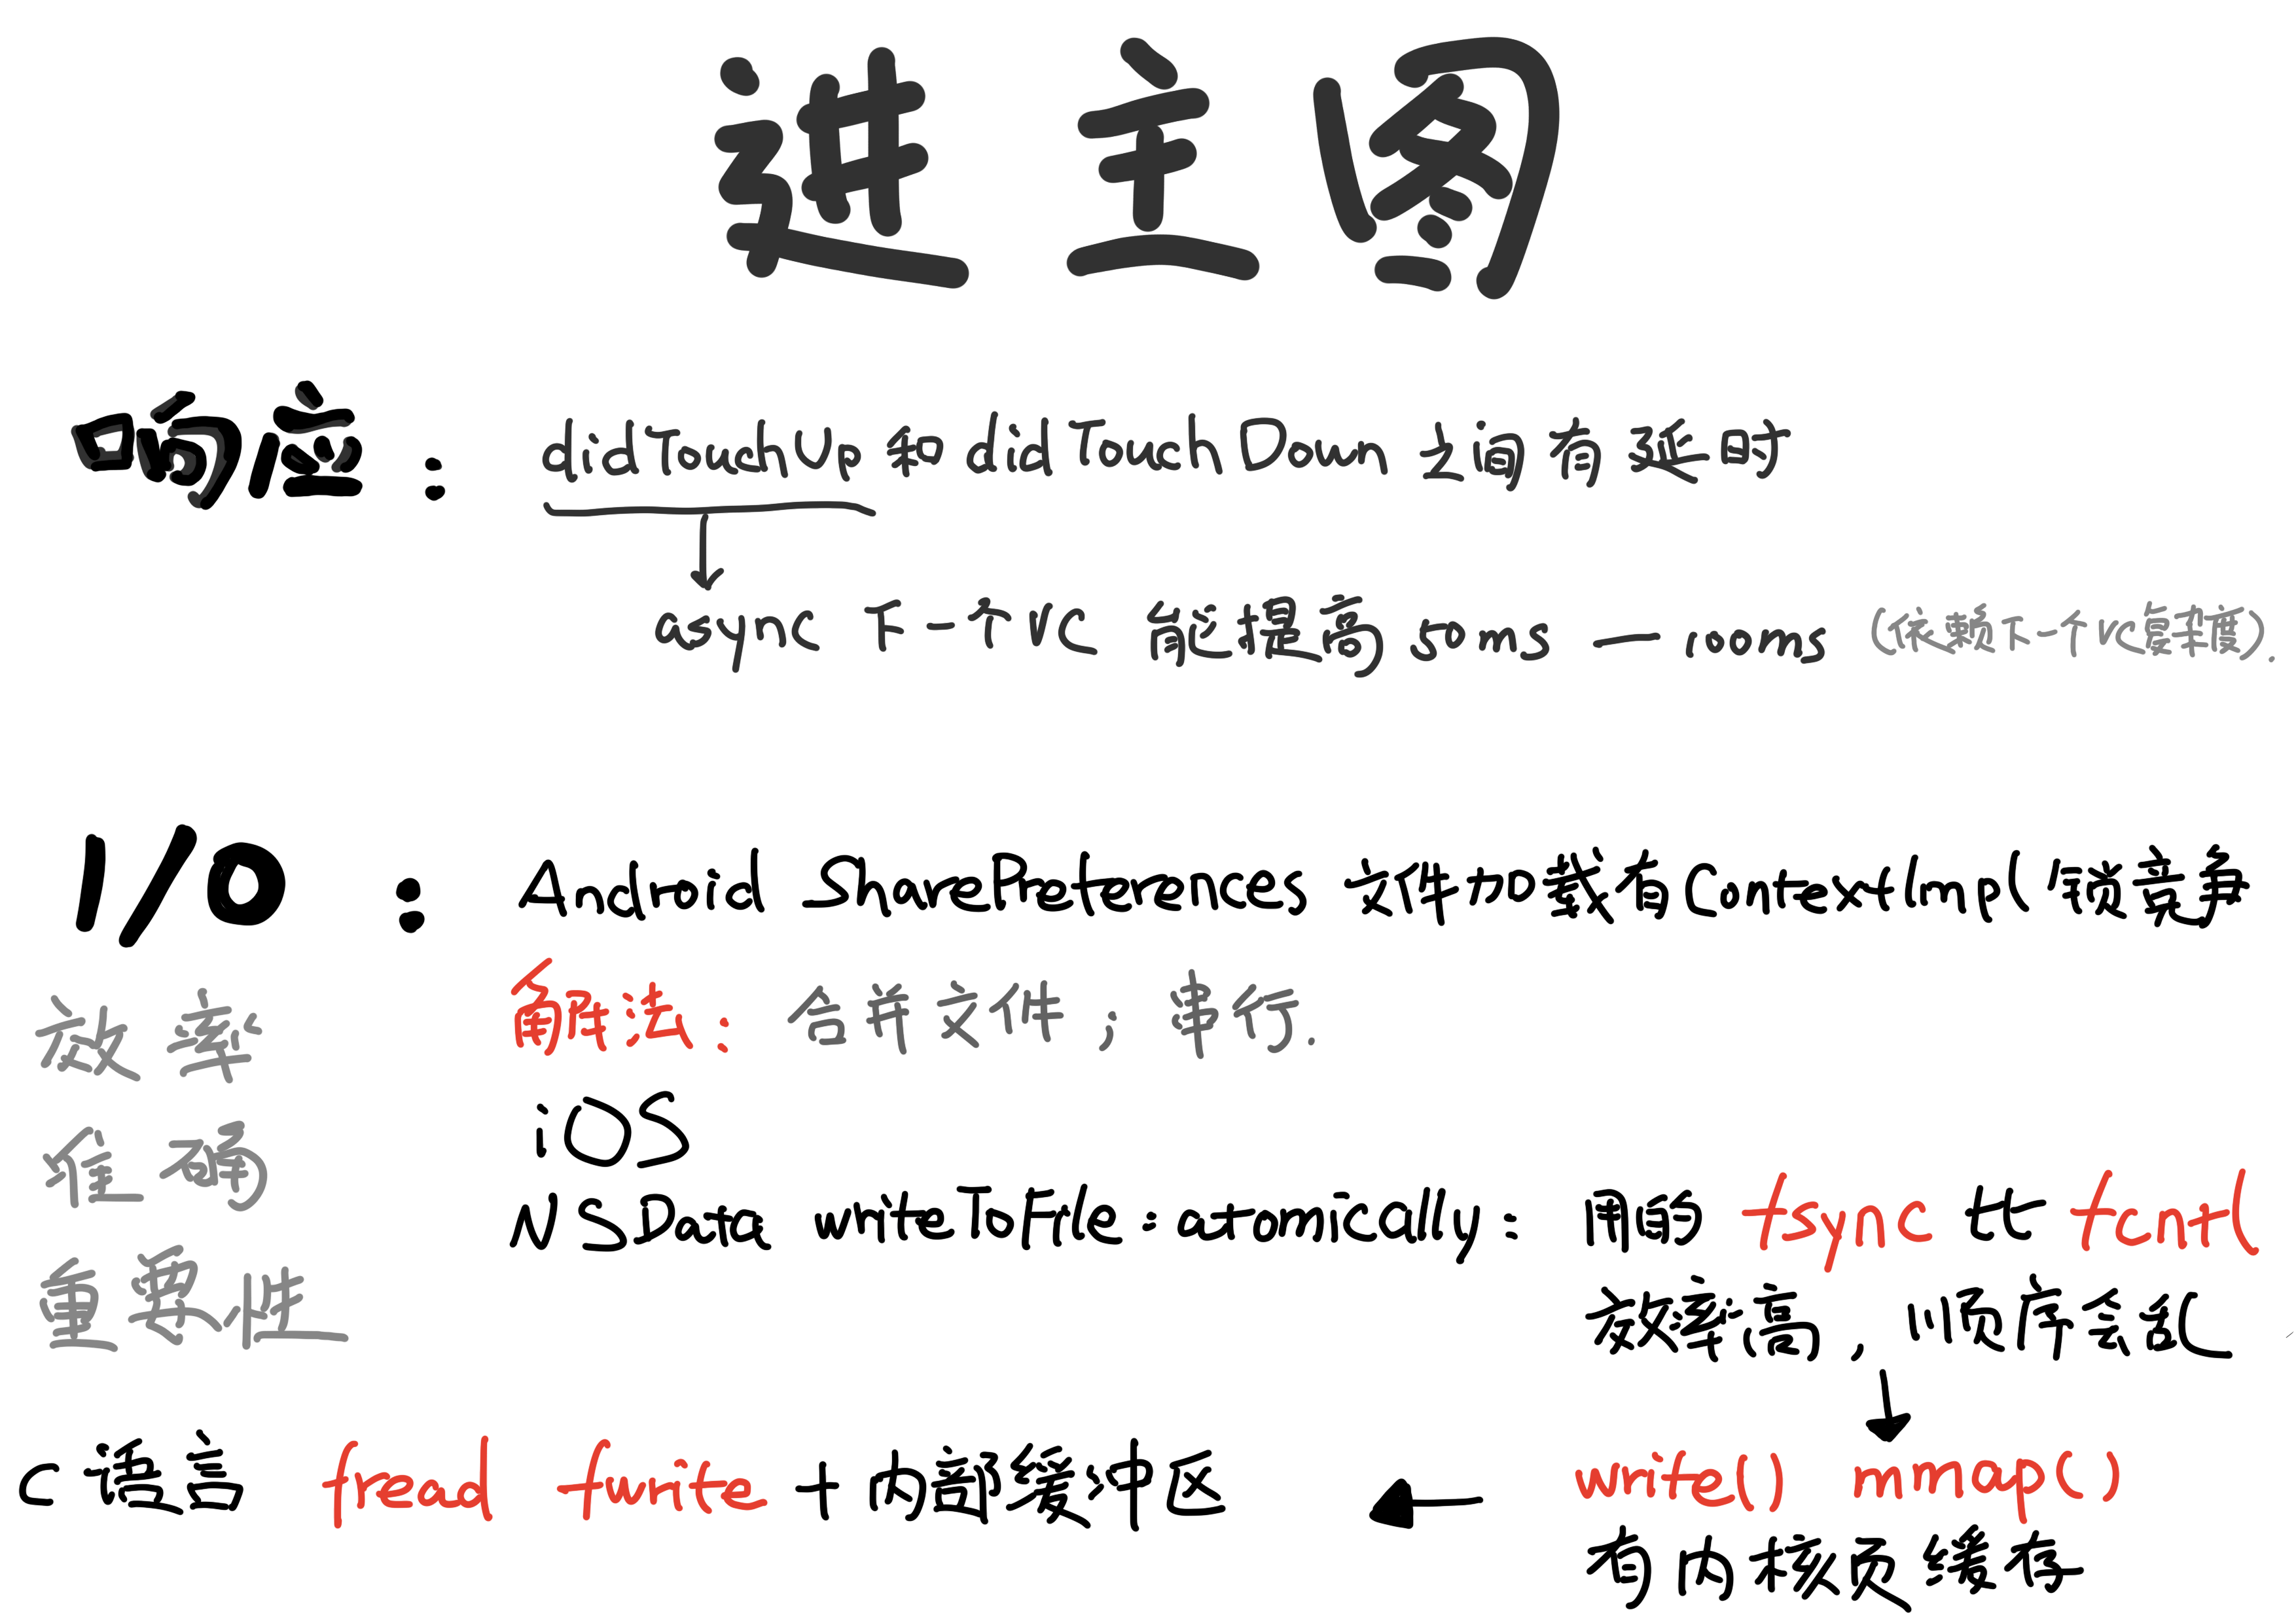 进主图
响应：didTouchUp 和 didTouchDown 之间有延时
async 下一个VC 能提高 50ms — 100ms (依赖下一个VC复杂度).
I/O：Android SharePreferences 文件加载有ContextImpl 锁竞争
效率 解法：合并文件；串行.
iOS
准确
NSData writeToFile:atomically: 用的 fsync 比 fcntl
重要性 效率高，顺序会乱
C语言 fread fwrite + 内部缓冲区 write() mmap()
有内核页缓存